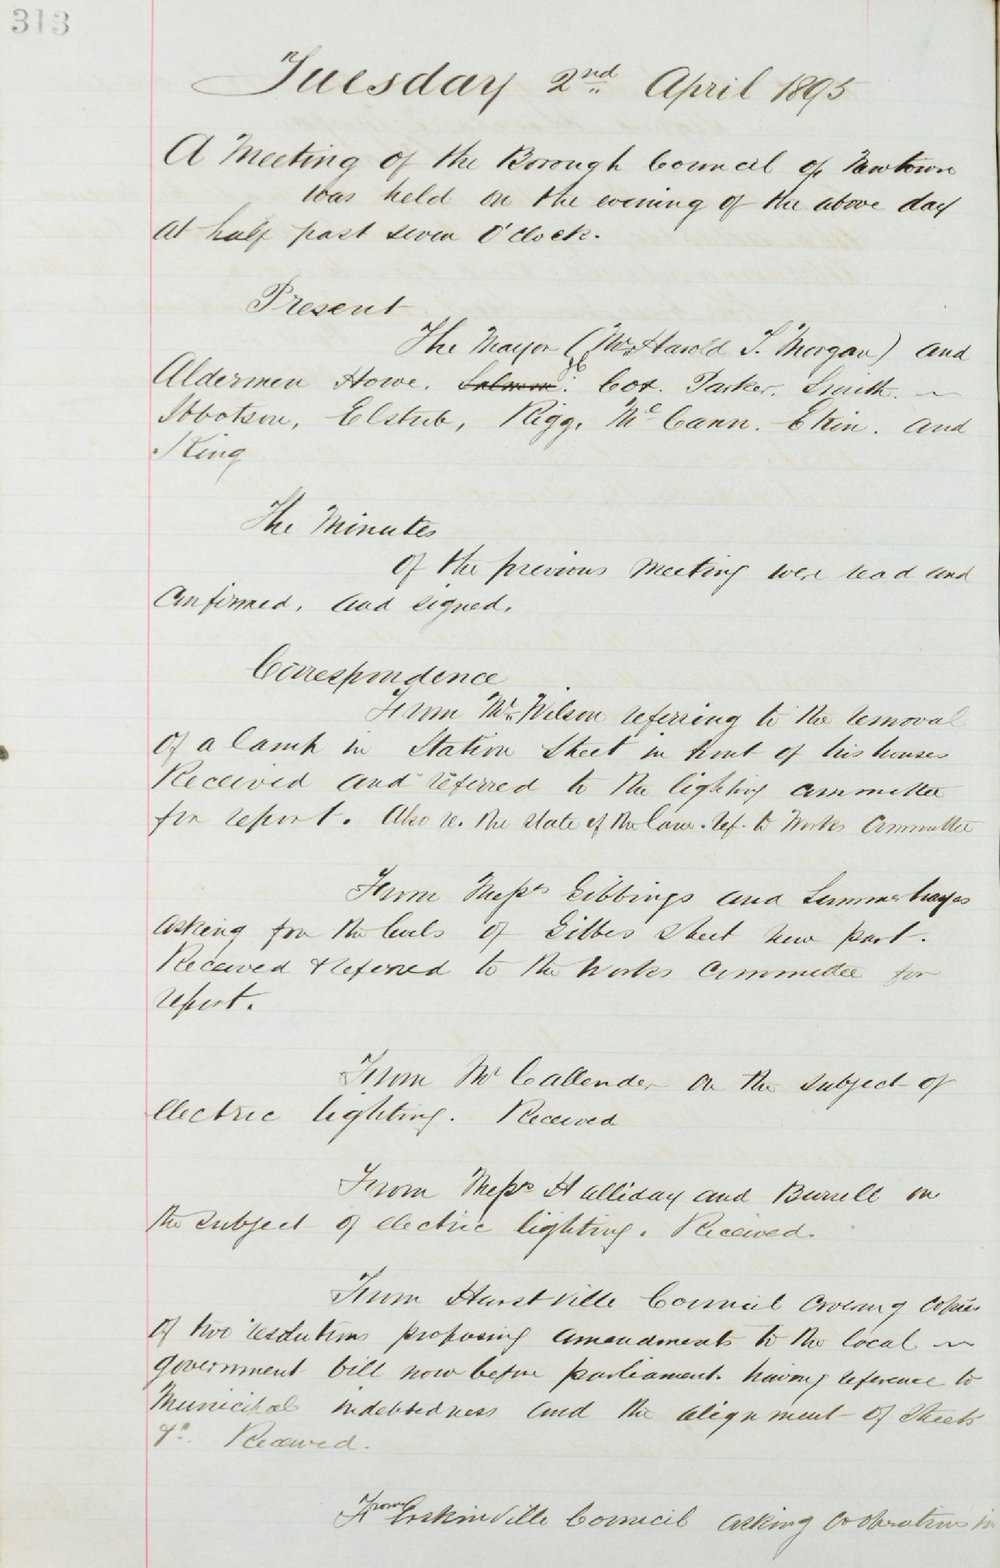 313
Tuesday 2nd April 1895
A Meeting of the Borough Council of Newtown
was held on the evening of the above day
at half past seven O'Clock.
Present
The Mayor (Mr Harold T. Morgan) and
Aldermen Howe. Salmon. Cox. Parker. Smith.
Ibbotson, Elstub, Rigg, McCann. Ekin. and
King
The Minutes
of the previous meeting were read and
confirmed. and signed.
Correspondence
From Mr. Wilson referring to the removal
of a lamp in Station Street in front of his houses
Received and referred to the lighting committee
for report. Also re. the state of the lane. ref. to Works Committee
From Messrs Gibbings and Summerhayes
asking for the levels of Gibbes Street new part.
Received & referred to the Works Committee for
report.
From Mr Callender on the subject of
electric lighting. Received
From Messrs Halliday and Burrell on
the subject of electric lighting. Received.
From Hurstville Council copies
of two resolutions proposing amendments to the local
government bill now before parliament. having reference to
Municipal indebtedness and the alignment of Streets
&c. Received.
From Erskinville Council asking cooperation in